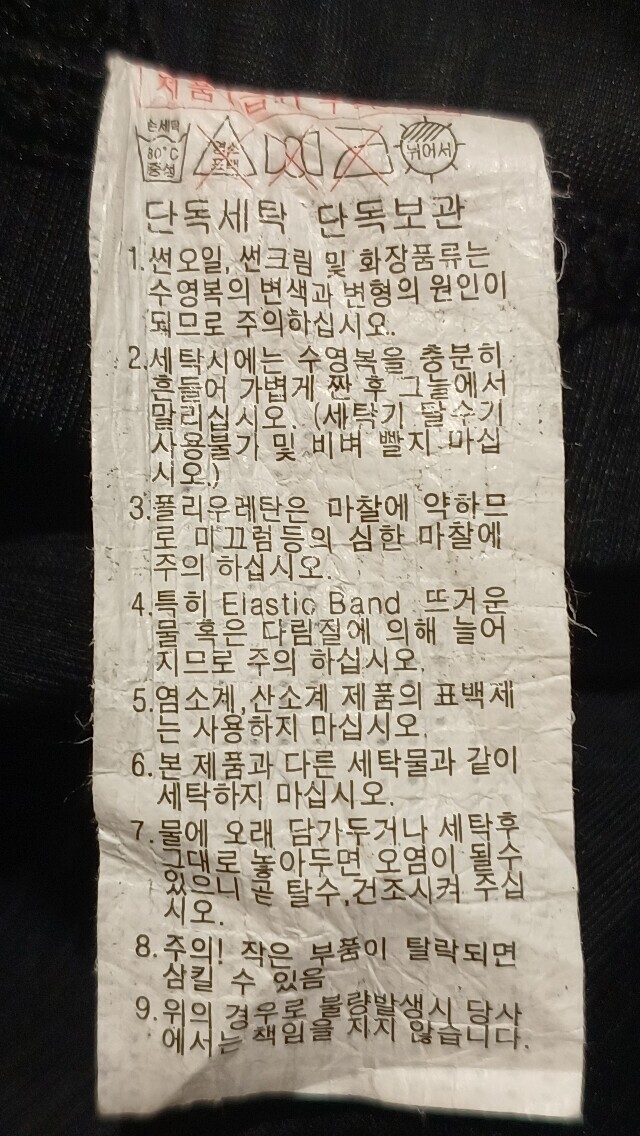 제품
손세탁 30°C 중성 염소 표백 뉘어서
단독세탁 단독보관
1.썬오일, 썬크림 및 화장품류는
수영복의 변색과 변형의 원인이
되므로 주의하십시오.
2.세탁시에는 수영복을 충분히
흔들어 가볍게 짠 후 그늘에서
말리십시오. (세탁기 탈수기
사용불가 및 비벼 빨지 마십
시오.)
3.폴리우레탄은 마찰에 약하므
로 미끄럼등의 심한 마찰에
주의 하십시오.
4.특히 Elastic Band 뜨거운
물 혹은 다림질에 의해 늘어
지므로 주의 하십시오.
5.염소계,산소계 제품의 표백제
는 사용하지 마십시오.
6.본 제품과 다른 세탁물과 같이
세탁하지 마십시오.
7.물에 오래 담가두거나 세탁후
그대로 놓아두면 오염이 될수
있으니 곧 탈수,건조시켜 주십
시오.
8.주의! 작은 부품이 탈락되면
삼킬 수 있음
9.위의 경우로 불량발생시 당사
에서는 책임을 지지 않습니다.